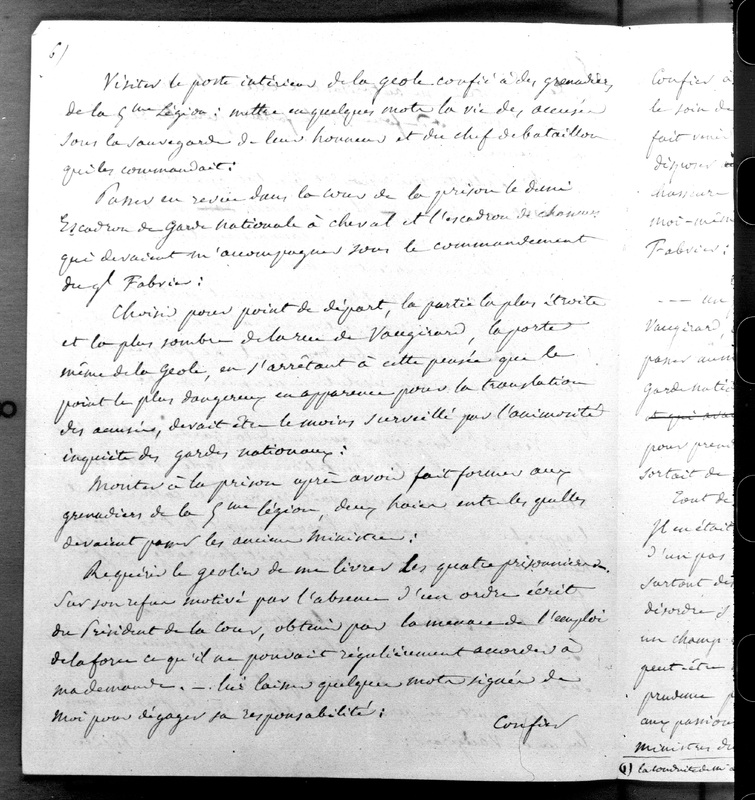 6)
Visiter le poste intérieur de la geole confié à des grenadiers
de la 5me Légion : mettre en quelques mots la vie des accusés
sous la sauvegarde de leur honneur et du chef de bataillon
qui les commandait :
Passer en revue dans la cour de la prison le demi
Escadron de Garde nationale à cheval et l'escadron de chasseurs
qui devaient m'accompagner sous le commandement
du gl Fabvier :
Choisir pour point de départ, la partie la plus étroite
et la plus sombre de la rue de Vaugirard, la porte
même de la Geole, en s'arrêtant à cette pensée que le
point le plus dangereux en apparence pour la translation
des accusés, devait être le moins surveillé par l'animosité
inquiète des gardes nationaux :
Monter à la prison après avoir fait former aux
grenadiers de la 5me légion, deux haies entre lesquelles
devaient passer les anciens Ministres :
Requérir le geolier de me livrer les quatre prisonniers.
Sur son refus motivé par l'absence d'un ordre écrit
du Président de la Cour, obtenir par la menace de l'emploi
de la force ce qu'il ne pouvait régulièrement accorder à
ma demande. — lui laisser quelques mots signés de
moi pour dégager sa responsabilité :
Confier
Confier à
le soin de
fait venir
disposer
moi-même
Fabvier :
un
Vaugirard,
passer
garde
pour
sortait de
Tout
Il en était
d'un pas
surtout
désordre
un champ
peut-être
prudence
aux passions
ministres
(1) la conduite de